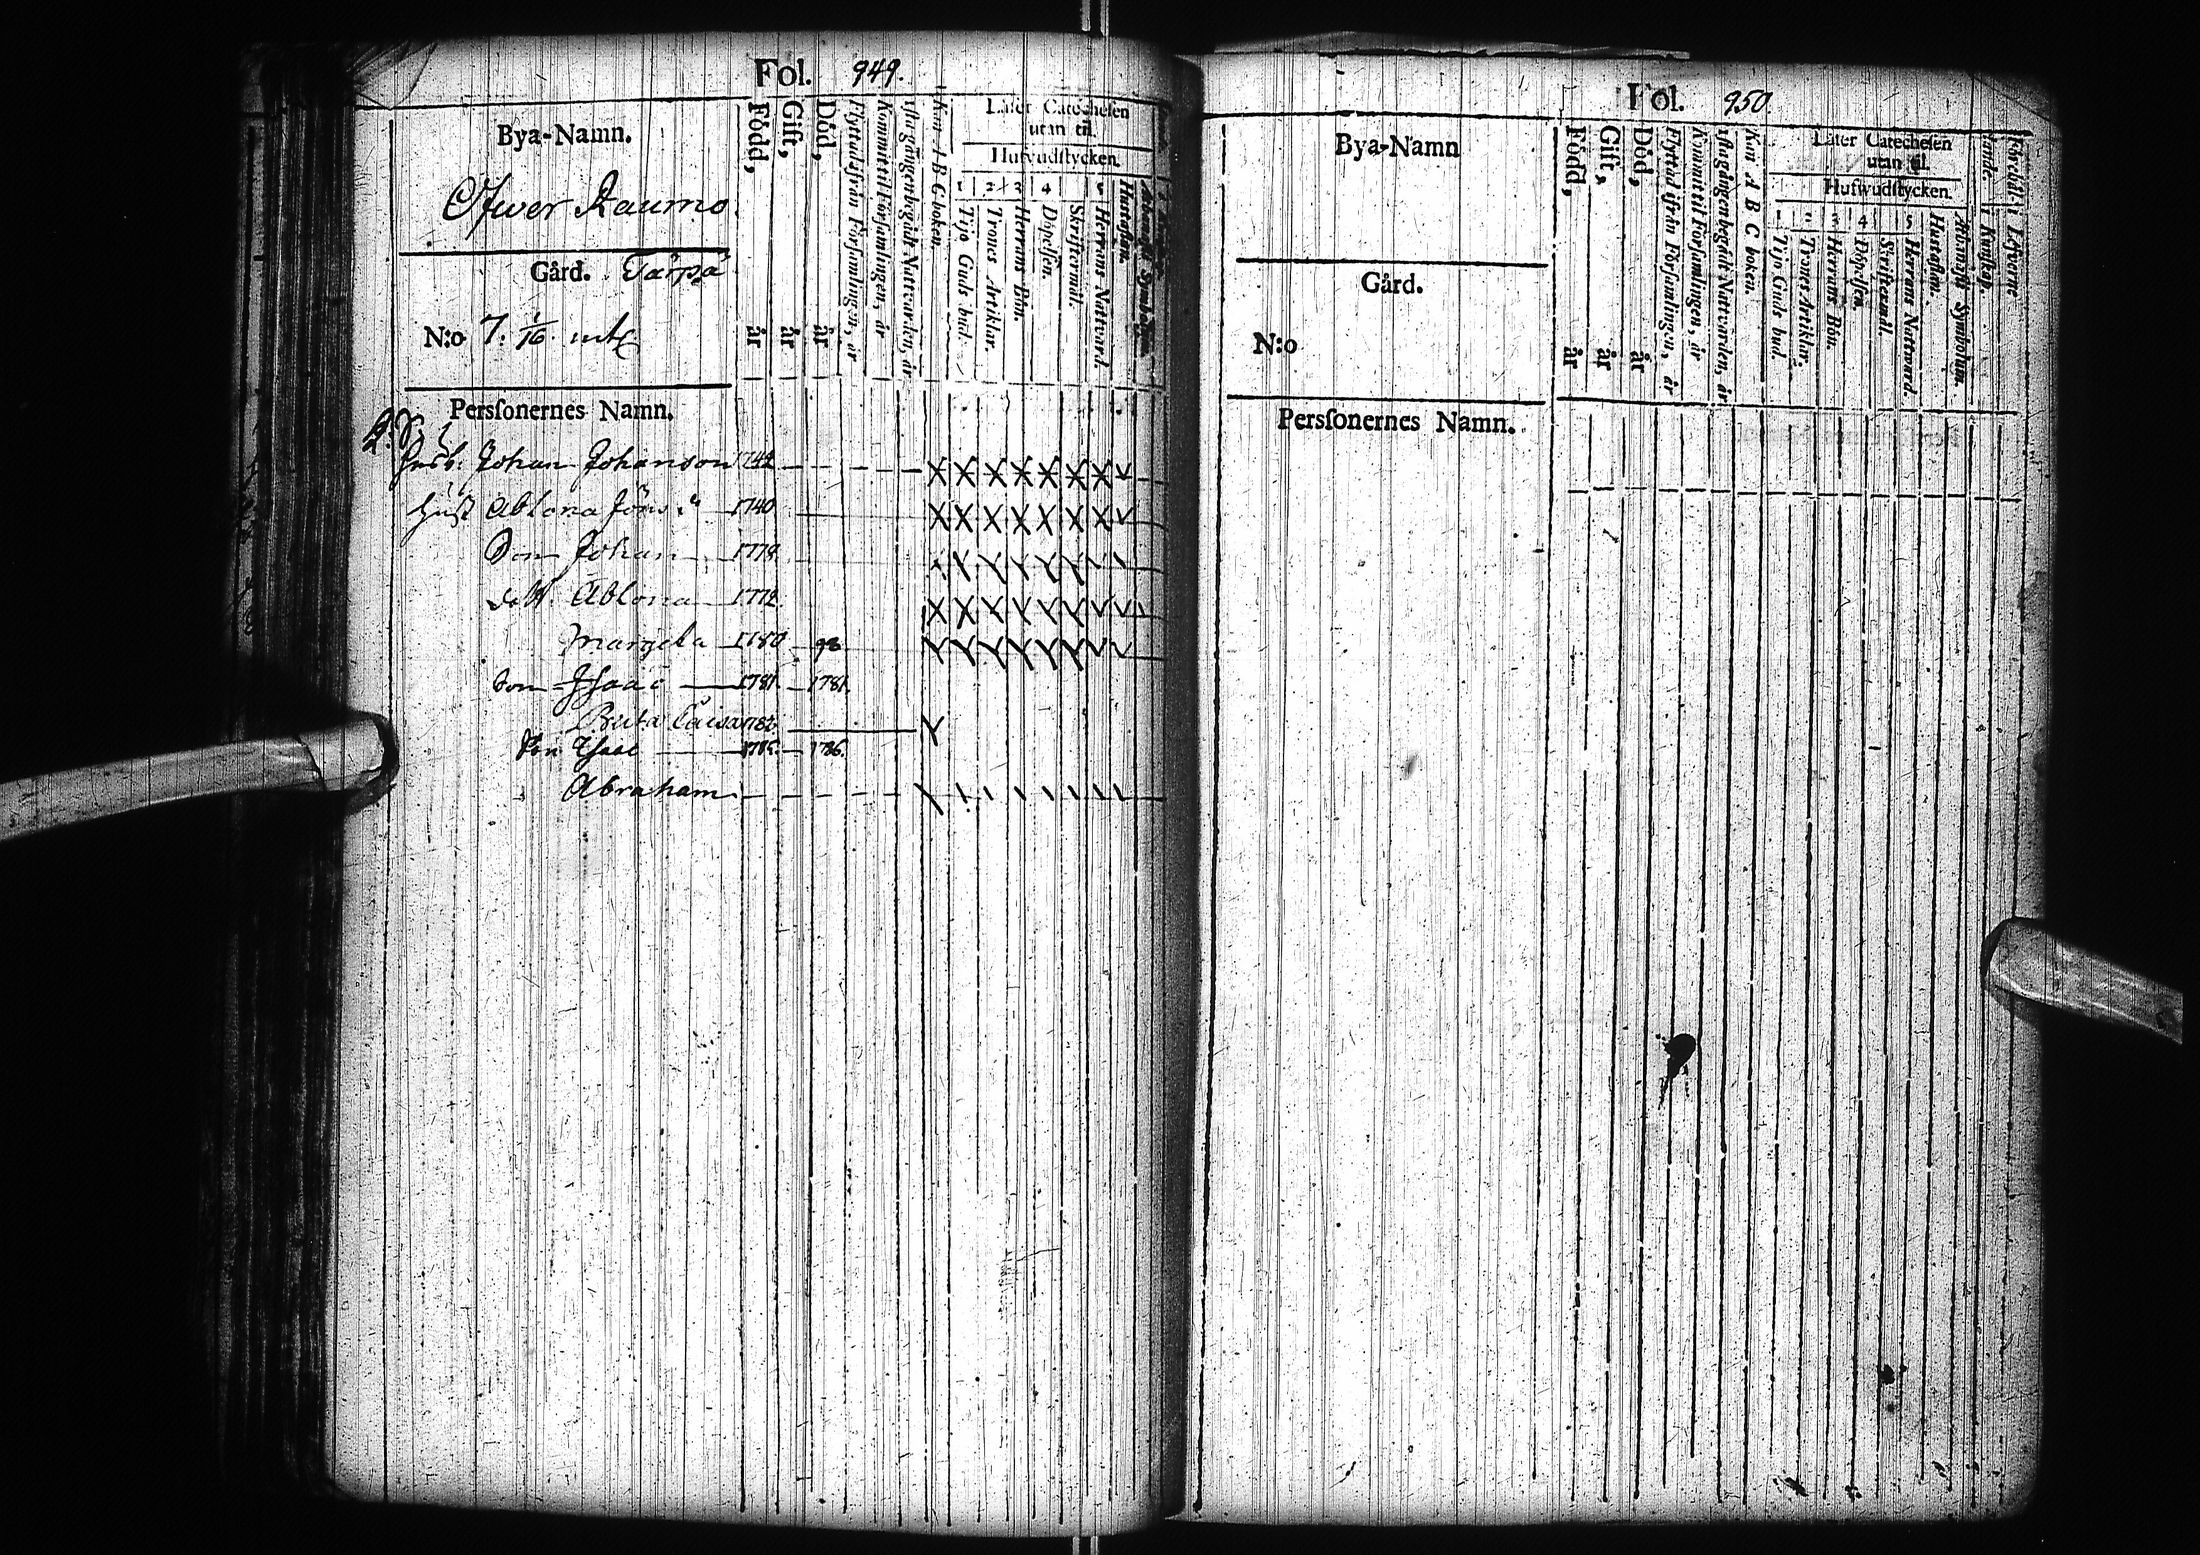 Fol. 949.
Bya-Namn.
Ofwer Raumo
Gård. Tarpa
N:o 7. 1/16. mtl
Född, år
Gift, år
Död, år
Flyttad ifrån Församlingen, år
Kommit til Församlingen, år
1sta gången begådt Nattvarden, år
Kan A B C boken.
Läser Catechesen
utan til.
Hufvudstycken.
1 2 3 4 5
Tijo Guds bud.
Trones Artiklar.
Herrans Bön.
Döpelsen.
Skriftermål.
Herrans Nattvard.
Hustaflan.
Personernes Namn.
Husb: Johan Johanson 1742
Hust Ablona Jöns d 1740
Son Johan 1778
dott. Ablona 1772
Margeta 1780 98
Son Isaac 1781 1781
Brita Caisa 1782
Son Isaac 1785 1786
Abraham
Fol. 950.
Bya-Namn
Gård.
N:o
Född, år
Gift, år
Död, år
Flyttad ifrån Församlingen, år
Kommit til Församlingen, år
1sta gången begådt Nattvarden, år
Kan A B C boken.
Läser Catechesen
utan til.
Hufwudstycken.
1 2 3 4 5
Tijo Guds bud.
Trones Artiklar.
Herrans Bön.
Döpelsen.
Skriftermål.
Herrans Nattward.
Hustaflan.
Athanasii Symbolum.
i Kunskap.
i Lefverne
Personernes Namn.